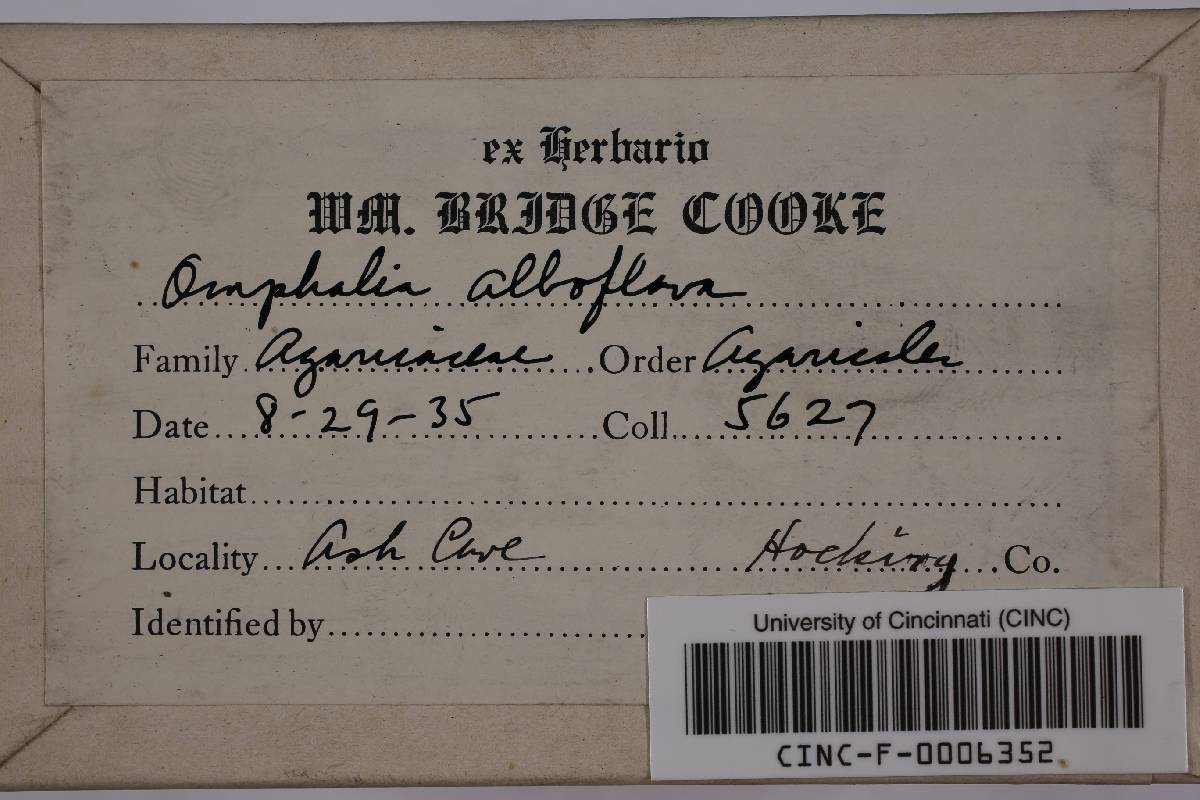 ex Herbario
WM. BRIDGE COOKE
Omphalia alboflava
Family Agaricaceae Order Agaricales
Date 8-29-35 Coll. 5627
Habitat
Locality Ash Cave Hocking Co.
Identified by
University of Cincinnati (CINC)
CINC-F-0006352